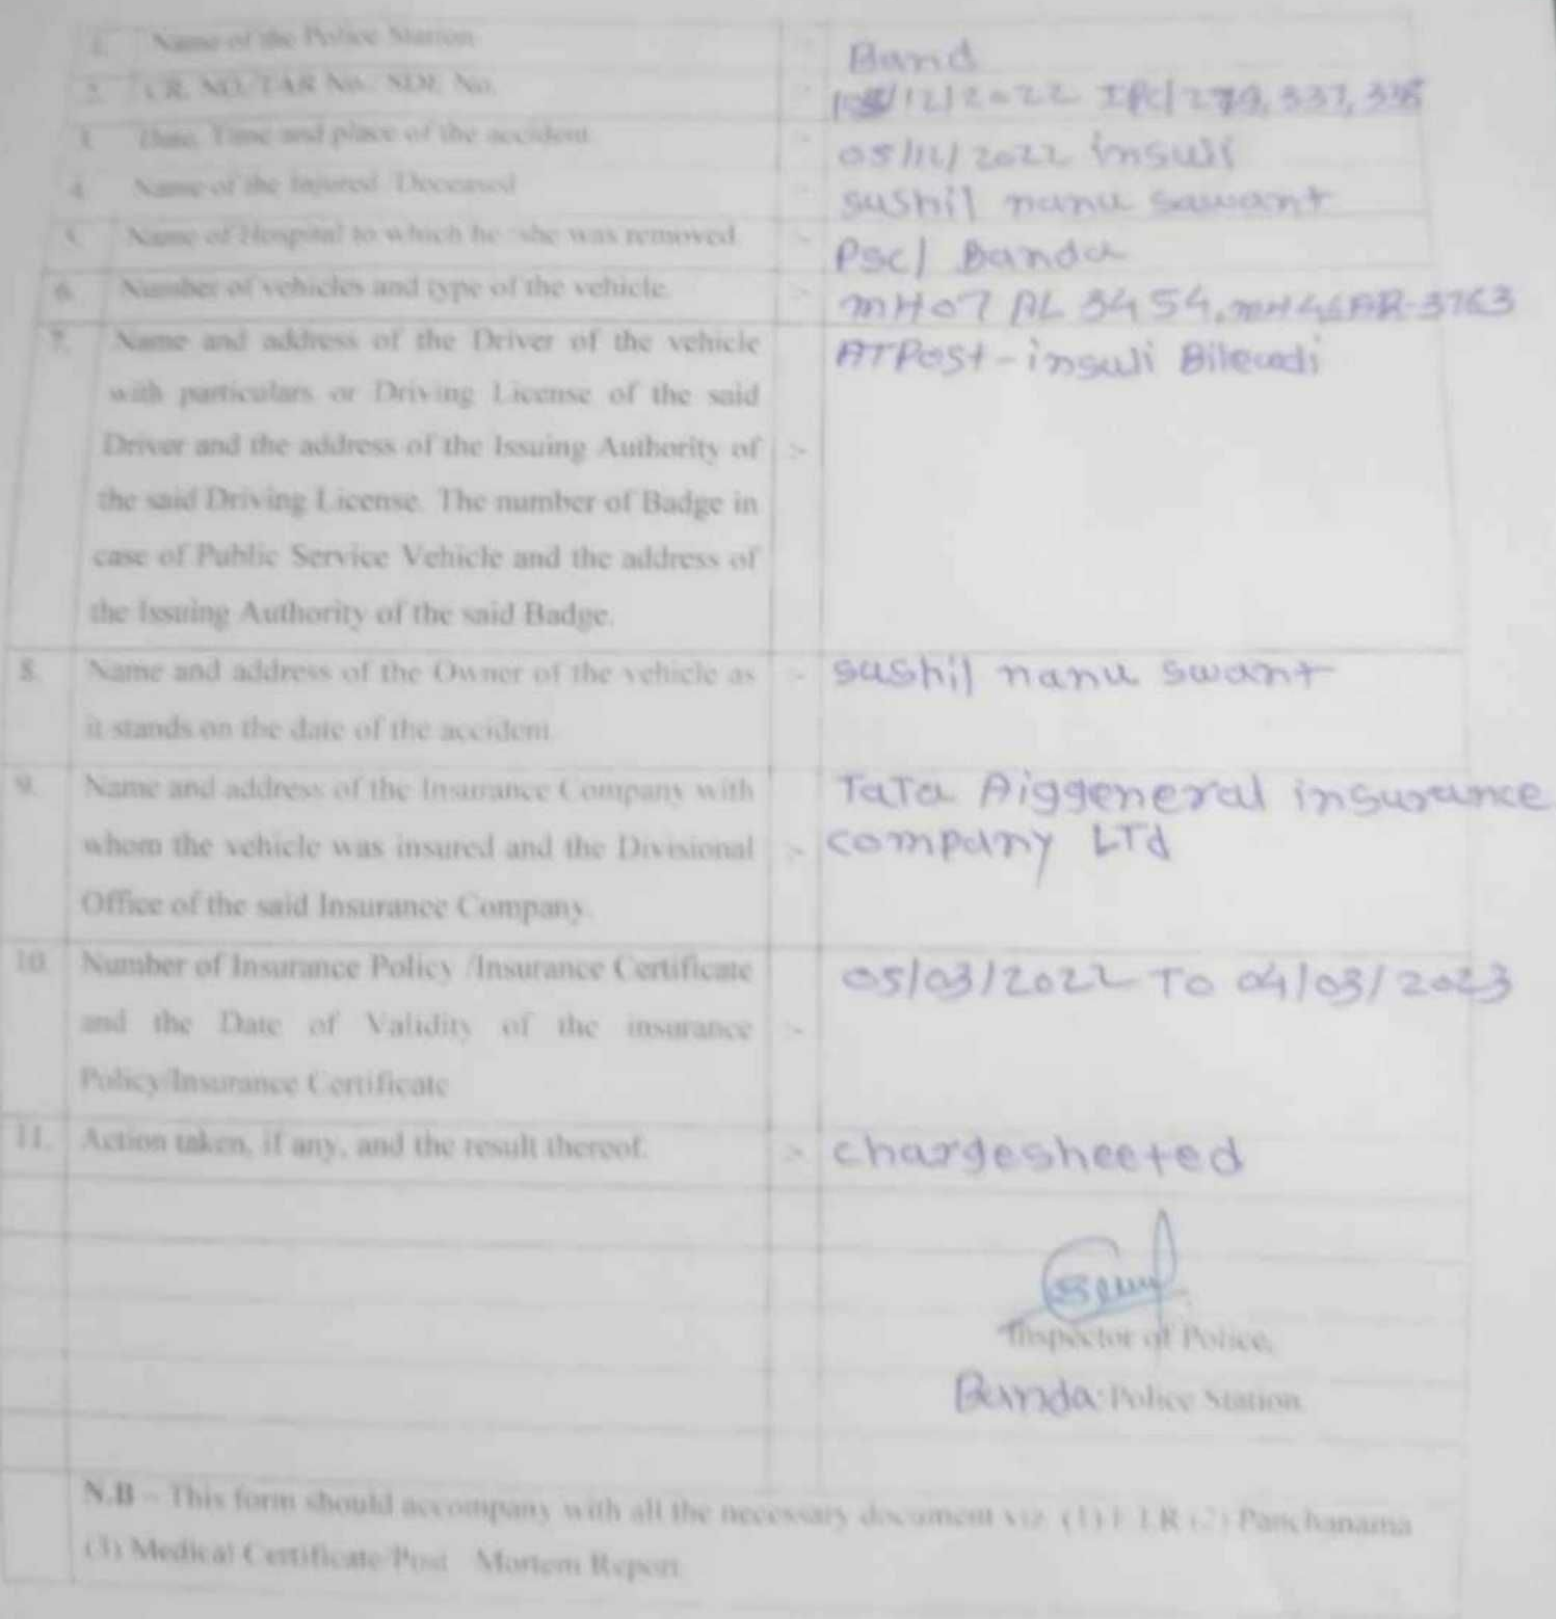 1. Name of the Police Station Band
2. CR. NO./TAR No./ SDE No. :- /12/2022 IPC/ 279, 337, 338
3. Date, Time and place of the accident :- 05/12/2022 insuli
4. Name of the Injured /Deceased :- sushil nanu sawant
5. Name of Hospital to which he /she was removed :- Psc/ Banda
6. Number of vehicles and type of the vehicle. :- mH07 AL 3454, mH46AR-3763
7. Name and address of the Driver of the vehicle ATPost-insuli Bilewadi
with particulars or Driving License of the said
Driver and the address of the Issuing Authority of :-
the said Driving License. The number of Badge in
case of Public Service Vehicle and the address of
the Issuing Authority of the said Badge.
8. Name and address of the Owner of the vehicle as :- sushil nanu swant
it stands on the date of the accident.
9. Name and address of the Insurance Company with TaTa Aiggeneral insurance
whom the vehicle was insured and the Divisional :- company LTd
Office of the said Insurance Company.
10. Number of Insurance Policy /Insurance Certificate 05/03/2022 To 04/03/2023
and the Date of Validity of the insurance :-
Policy/Insurance Certificate
11. Action taken, if any, and the result thereof. :- chargesheeted
Inspector of Police,
Banda Police Station.
N.B – This form should accompany with all the necessary document viz. (1) F.I.R (2) Panchanama
(3) Medical Certificate/Post Mortem Report